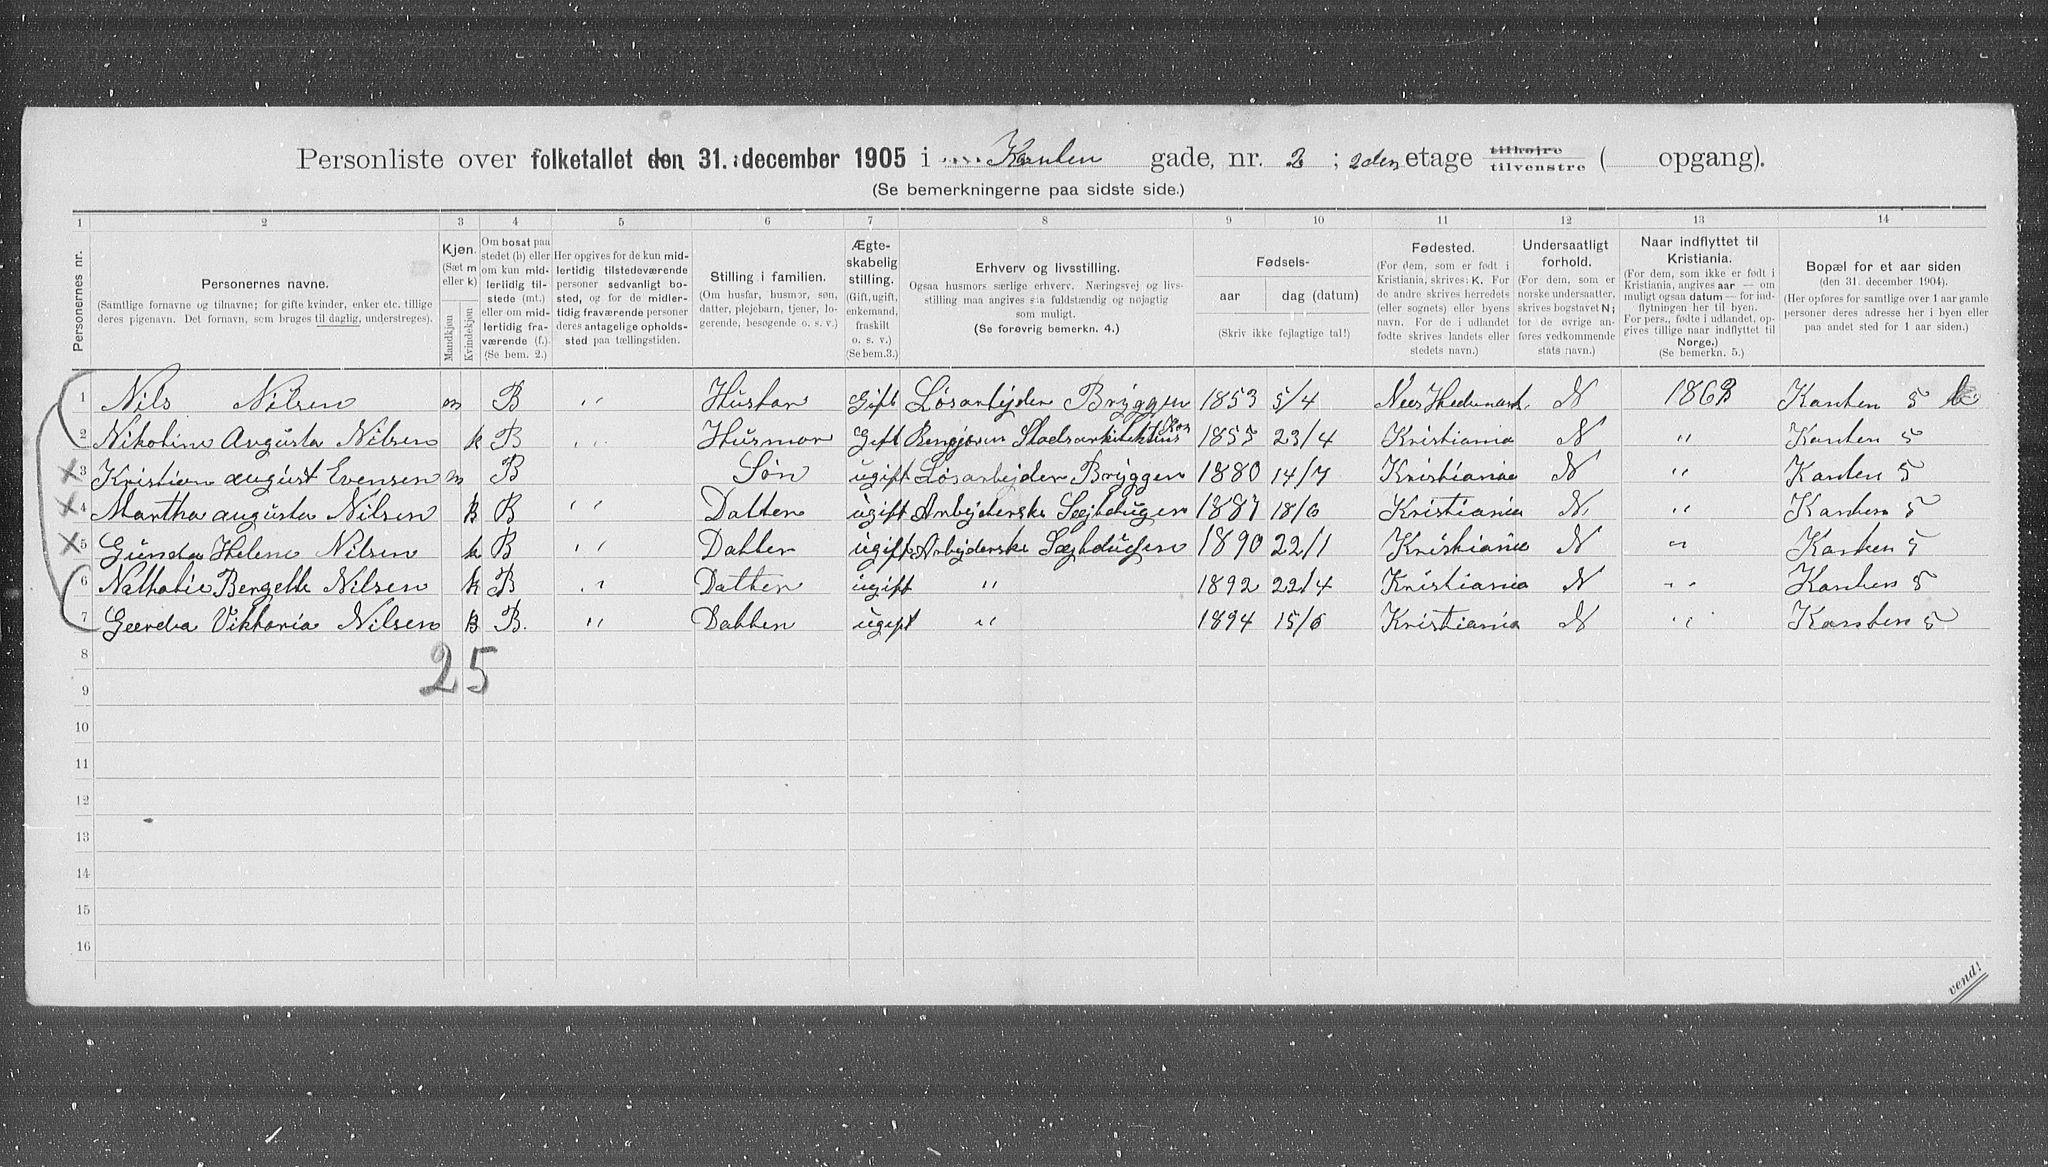 Personliste over folketallet den 31. december 1905 i Kanten gade, nr. 2 ; 2den etage tilhøjre tilvenstre ( opgang).
(Se bemerkningerne paa sidste side.)
1 2 3 4 5 6 7 8 9 10 11 12 13 14
Personernes nr.
Personernes navne.
(Samtlige fornavne og tilnavne; for gifte kvinder, enker etc. tillige
deres pigenavn. Det fornavn, som bruges til daglig, understreges).
Kjøn.
(Sæt m
eller k)
Mandkjøn
Kvindekjøn
Om bosat paa
stedet (b) eller
om kun mid-
lertidig til-
stede (mt.)
eller om mid-
lertidig fra-
værende (f.).
(Se bem. 2.)
Her opgives for de kun mid-
lertidig tilstedeværende
personer sedvanligt bo-
sted, og for de midler-
tidig fraværende personer
deres antagelige opholds-
sted paa tællingstiden.
Stilling i familien.
(Om husfar, husmor, søn,
datter, plejebarn, tjener, lo-
gerende, besøgende o. s. v.)
Ægte-
skabelig
stilling.
(Gift, ugift,
enkemand,
fraskilt
o. s. v.)
(Se bem. 3.)
Erhverv og livsstilling.
Ogsaa husmors særlige erhverv. Næringsvej og livs-
stilling maa angives saa fuldstændig og nøjagtig
som muligt.
(Se forøvrig bemerkn. 4.)
Fødsels-
aar dag (datum)
(Skriv ikke fejlagtige tal!)
Fødested.
(For dem, som er født i
Kristiania, skrives: K. For
de andre skrives herredets
(eller sognets) eller byens
navn. For de i udlandet
fødte skrives landets eller
stedets navn.)
Undersaatligt
forhold.
(For dem, som er
norske undersaatter,
skrives bogstavet N;
for de øvrige an-
føres vedkommende
stats navn.)
Naar indflyttet til
Kristiania.
(For dem, som ikke er født i
Kristiania, angives aar — om
muligt ogsaa datum — for ind-
flytningen her til byen.
For pers., fødte i udlandet, op-
gives tillige naar indflyttet til
Norge.)
(Se bemerkn. 5.)
Bopæl for et aar siden
(den 31. december 1904).
(Her opføres for samtlige over 1 aar gamle
personer deres adresse her i byen eller
paa andet sted for 1 aar siden.)
1 Nils Nilsen m B " Husfar Gift Løsarbejder Bryggen 1853 5/4 Nes Hedemark. N 1863 Kanten 5 b
2 Nikoline Augusta Nilsen k B " Husmor Gift Rengjøren Stadsarkitektens Kon 1855 23/4 Kristiania N " Kanten 5
3 Kristian august Evensen m B Søn ugift Løsarbejder Bryggen 1880 14/7 Kristiania N " Kanten 5
4 Martha augusta Nilsen k B " Datter ugift Arbejderske Sejldugen 1887 18/6 Kristiania N. " Kanten 5
5 Gunda Helene Nilsen k B " Datter ugift Arbejderske Sejldugen 1890 22/1 Kristiania N " Kanten 5
6 Nathalie Bergette Nilsen k B " Datter ugift " 1892 22/4 Kristiania N " Kanten 5
7 Gerda Viktoria Nilsen k B. " Datter ugift " 1894 15/6 Kristiania N " Kanten 5
8
25
9
10
11
12
13
14
15
16
vend!